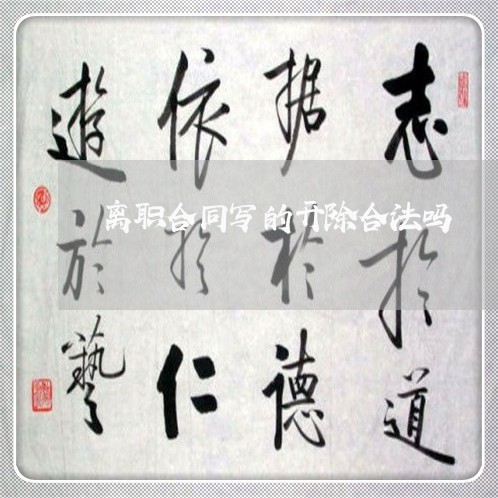 志於道
据於德
依於仁
遊於藝
离职合同写的开除合法吗